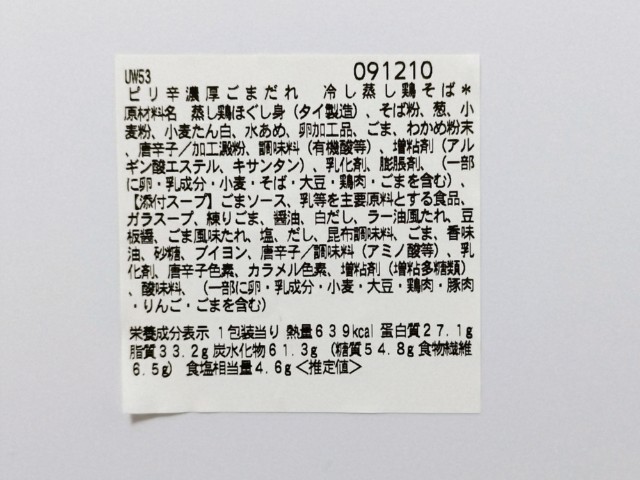 UW53 091210
ピリ辛濃厚ごまだれ 冷し蒸し鶏そば*
原材料名 蒸し鶏ほぐし身（タイ製造）、そば粉、葱、小
麦粉、小麦たん白、水あめ、卵加工品、ごま、わかめ粉末
、唐辛子／加工澱粉、調味料（有機酸等）、増粘剤（アル
ギン酸エステル、キサンタン）、乳化剤、膨脹剤、（一部
に卵・乳成分・小麦・そば・大豆・鶏肉・ごまを含む）、
【添付スープ】ごまソース、乳等を主要原料とする食品、
ガラスープ、練りごま、醤油、白だし、ラー油風たれ、豆
板醤、ごま風味たれ、塩、だし、昆布調味料、ごま、香味
油、砂糖、ブイヨン、唐辛子／調味料（アミノ酸等）、乳
化剤、唐辛子色素、カラメル色素、増粘剤（増粘多糖類）
、酸味料、（一部に卵・乳成分・小麦・大豆・鶏肉・豚肉
・りんご・ごまを含む）
栄養成分表示 1包装当り 熱量639kcal 蛋白質27.1g
脂質33.2g 炭水化物61.3g （糖質54.8g 食物繊維
6.5g） 食塩相当量4.6g＜推定値＞